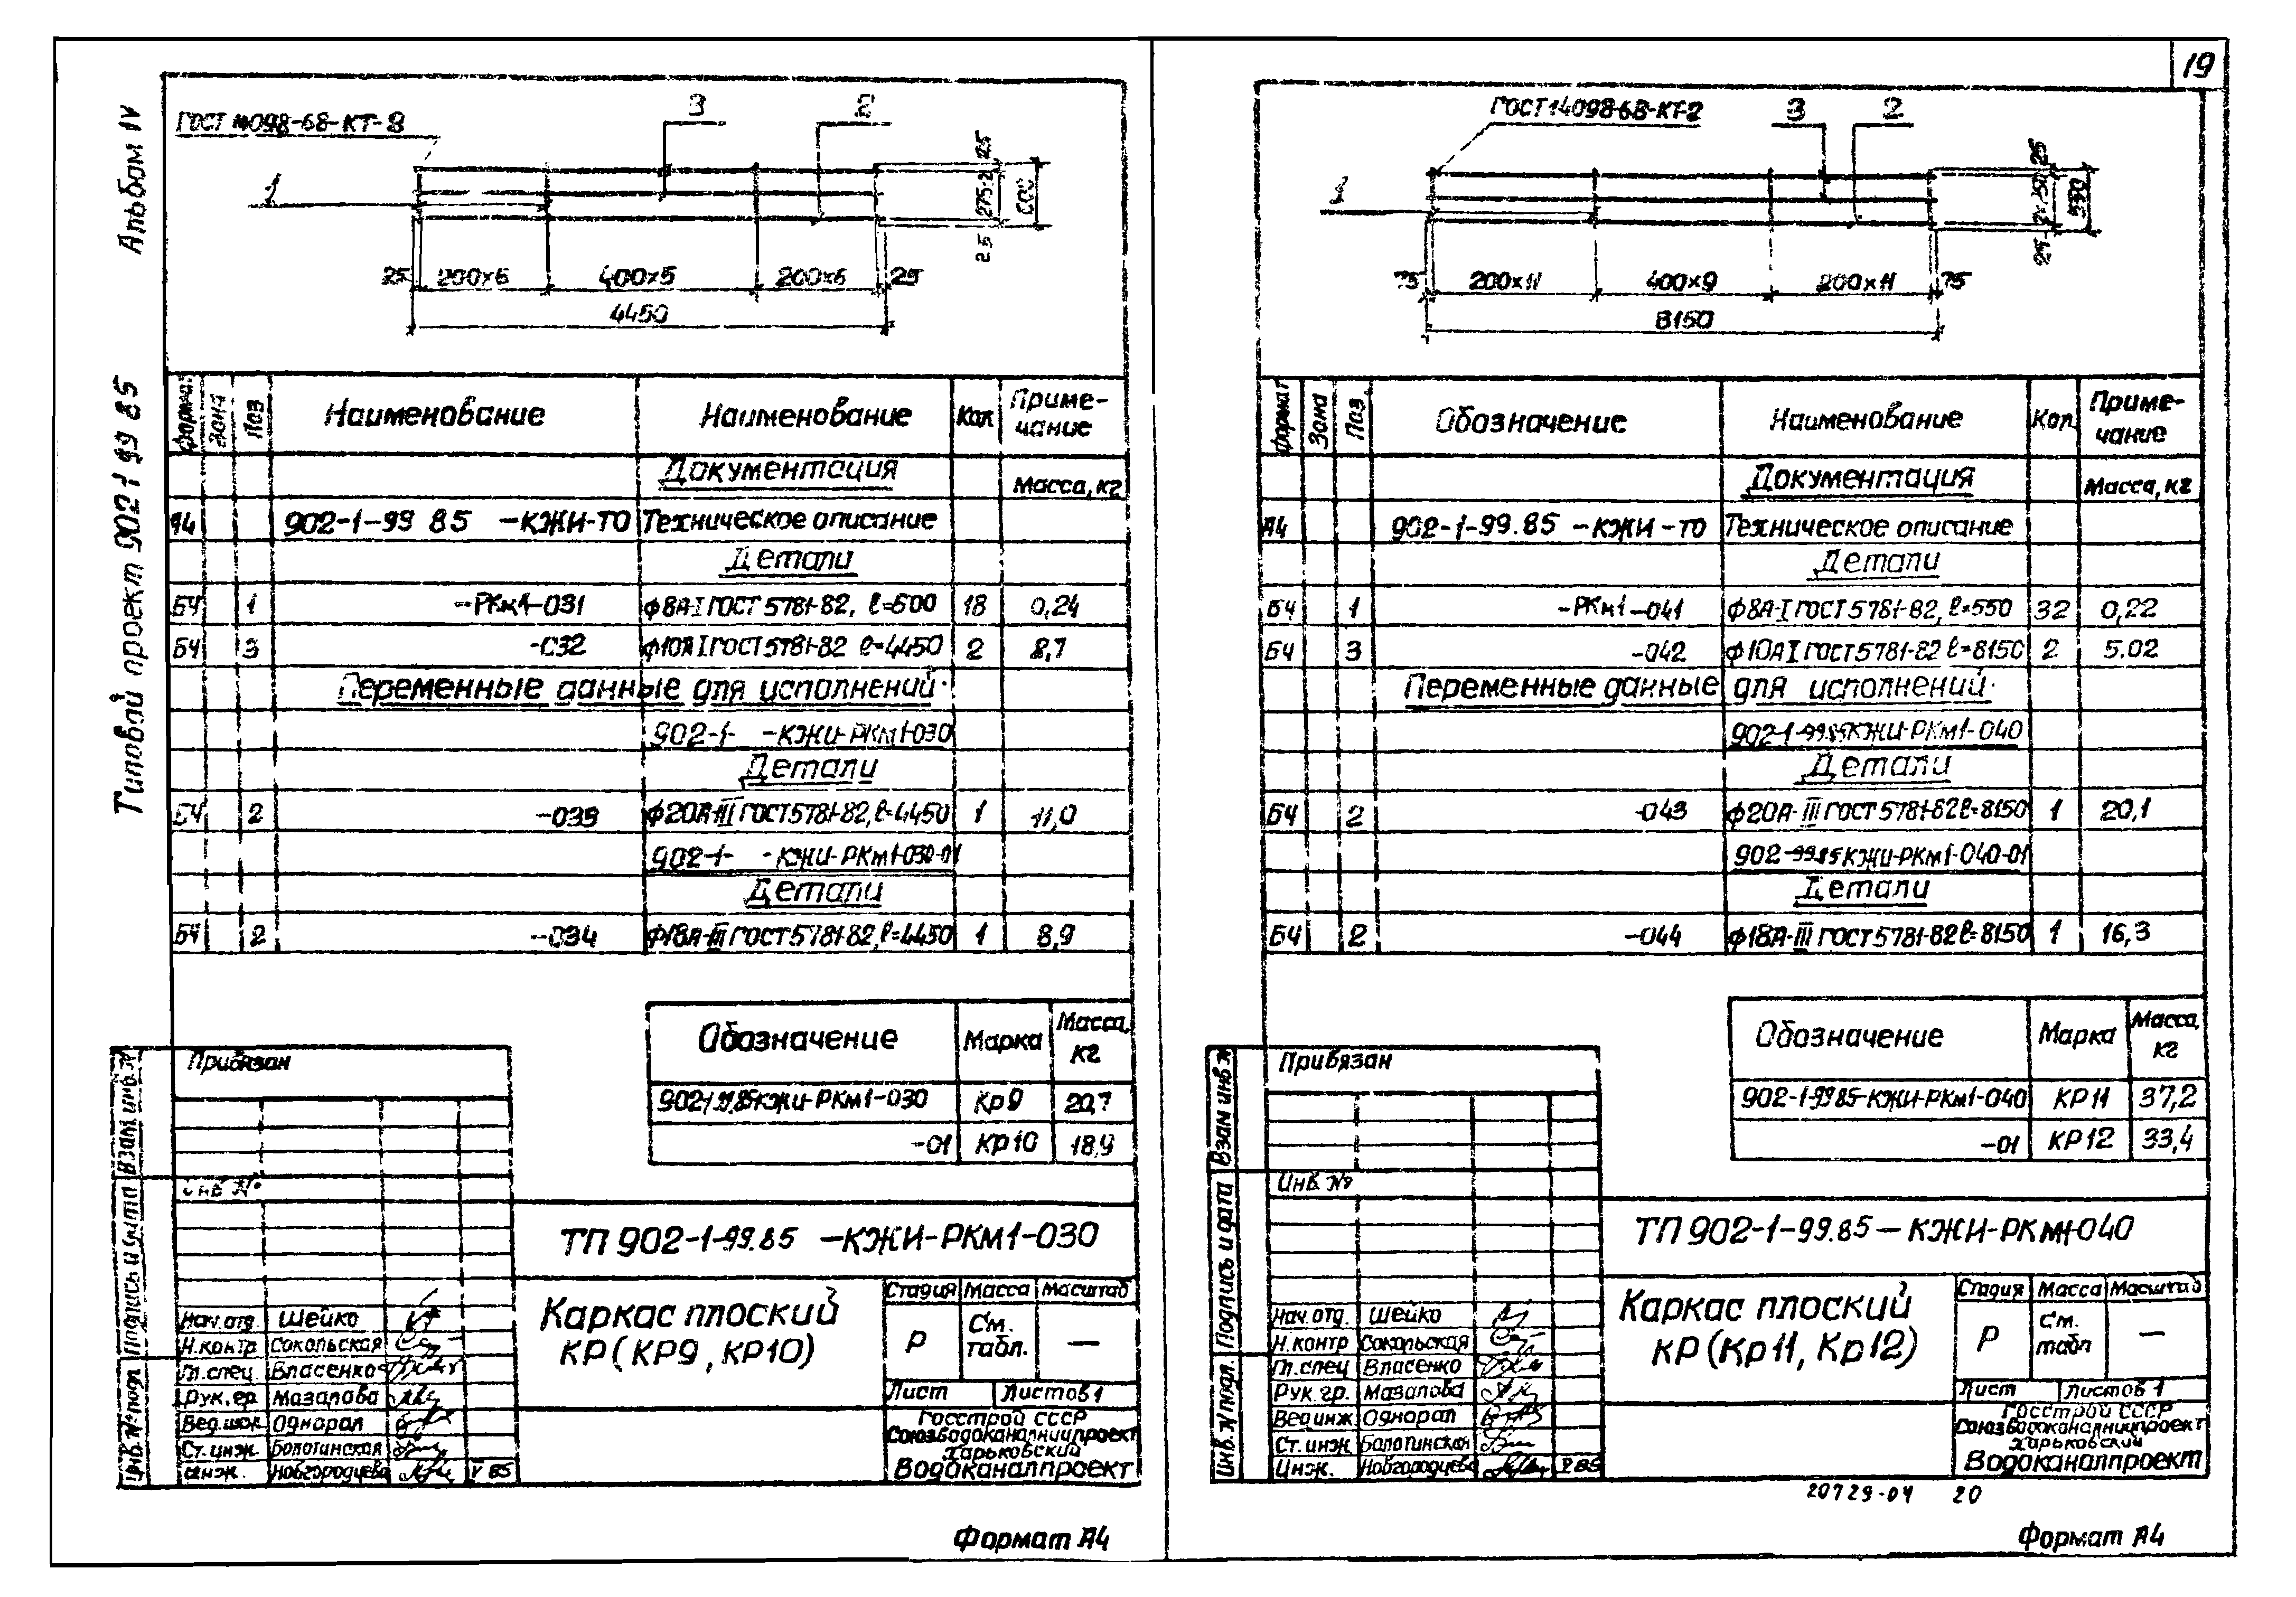 19
Альбом IV
Типовой проект 902 1 99 85
ГОСТ 14098-68-КТ-2
3
2
1
25
275×2
25
600
25
200×6
400×5
200×6
25
4450
Формат
Зона
Поз
Наименование
Наименование
Кол
Приме-
чание
Документация
Масса, кг
А4
902-1-99 85 -КЖИ-ТО
Техническое описание
Детали
БЧ 1 -РКм1-031 ф8А-I ГОСТ 5781-82, ℓ=600 18 0,24
БЧ 3 -032 ф10А I ГОСТ 5781-82 ℓ=4450 2 8,7
Переменные данные для исполнений
902-1- -КЖИ-РКм1-030
Детали
БЧ 2 -033 ф20А-III ГОСТ 5781-82, ℓ=4450 1 11,0
902-1- -КЖИ-РКм1-030-01
Детали
БЧ 2 -034 ф18А-III ГОСТ 5781-82, ℓ=4450 1 8,9
Обозначение Марка Масса, кг
902-1-99.85-КЖИ-РКм1-030 Кр9 20,7
-01 Кр10 18,9
Привязан
Инв №
ТП 902-1-99.85 -КЖИ-РКм1-030
Каркас плоский
КР (КР9, КР10)
Стадия Масса Масштаб
Р См. табл. —
Лист Листов 1
Госстрой СССР
Союзводоканалниипроект
Харьковский
Водоканалпроект
Нач.отд. Шейко
Н.контр Сокольская
Гл.спец. Власенко
Рук.гр. Мазалова
Вед.инж. Однорал
Ст.инж. Болотинская
Инж. Новгородцева V 85
Взам инв.№
Подпись и дата
Инв.№ подл.
Формат А4
ГОСТ 14098-68-КТ-2
3
2
1
25
2×250
25
550
75
200×11
400×9
200×11
75
8150
Формат
Зона
Поз
Обозначение
Наименование
Кол
Приме-
чание
Документация
Масса, кг
А4
902-1-99.85 -КЖИ-ТО
Техническое описание
Детали
БЧ 1 -РКм1-041 ф8А-I ГОСТ 5781-82, ℓ=550 32 0,22
БЧ 3 -042 ф10А I ГОСТ 5781-82 ℓ=8150 2 5.02
Переменные данные для исполнений
902-1-99.85 КЖИ-РКм1-040
Детали
БЧ 2 -043 ф20А-III ГОСТ 5781-82 ℓ=8150 1 20,1
902-99.85 КЖИ-РКм1-040-01
Детали
БЧ 2 -044 ф18А-III ГОСТ 5781-82 ℓ=8150 1 16,3
Обозначение Марка Масса, кг
902-1-99 85-КЖИ-РКм1-040 КР11 37,2
-01 КР12 33,4
Привязан
Инв. №
ТП 902-1-99.85-КЖИ-РКм1-040
Каркас плоский
КР (Кр11, Кр12)
Стадия Масса Масштаб
Р См. табл —
Лист Листов 1
Госстрой СССР
Союзводоканалниипроект
Харьковский
Водоканалпроект
Нач.отд. Шейко
Н.контр Сокольская
Гл.спец Власенко
Рук.гр. Мазалова
Вед.инж Однорал
Ст.инж Болотинская
Инж. Новгородцева V 85
Взам инв №
Подпись и дата
Инв.№ подл.
20729-04 20
Формат А4